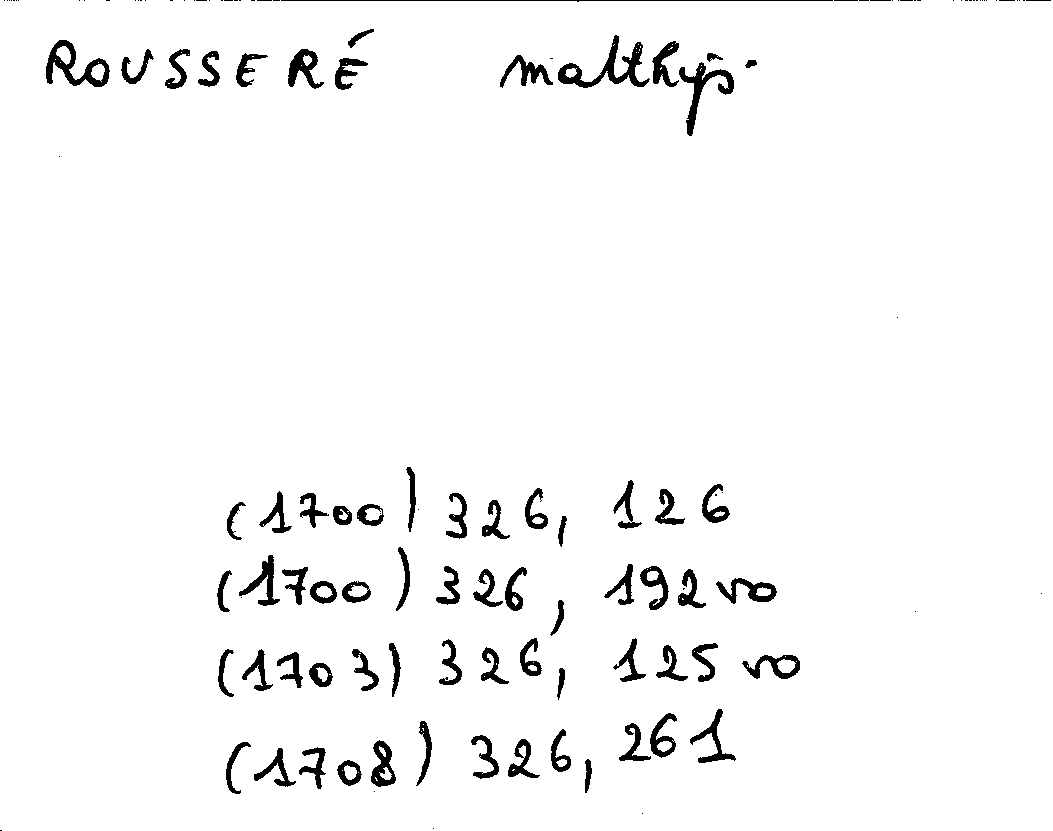 ROUSSERÉ matthijs.
(1700) 326, 126
(1700) 326, 192 vo
(1703) 326, 125 vo
(1708) 326, 261